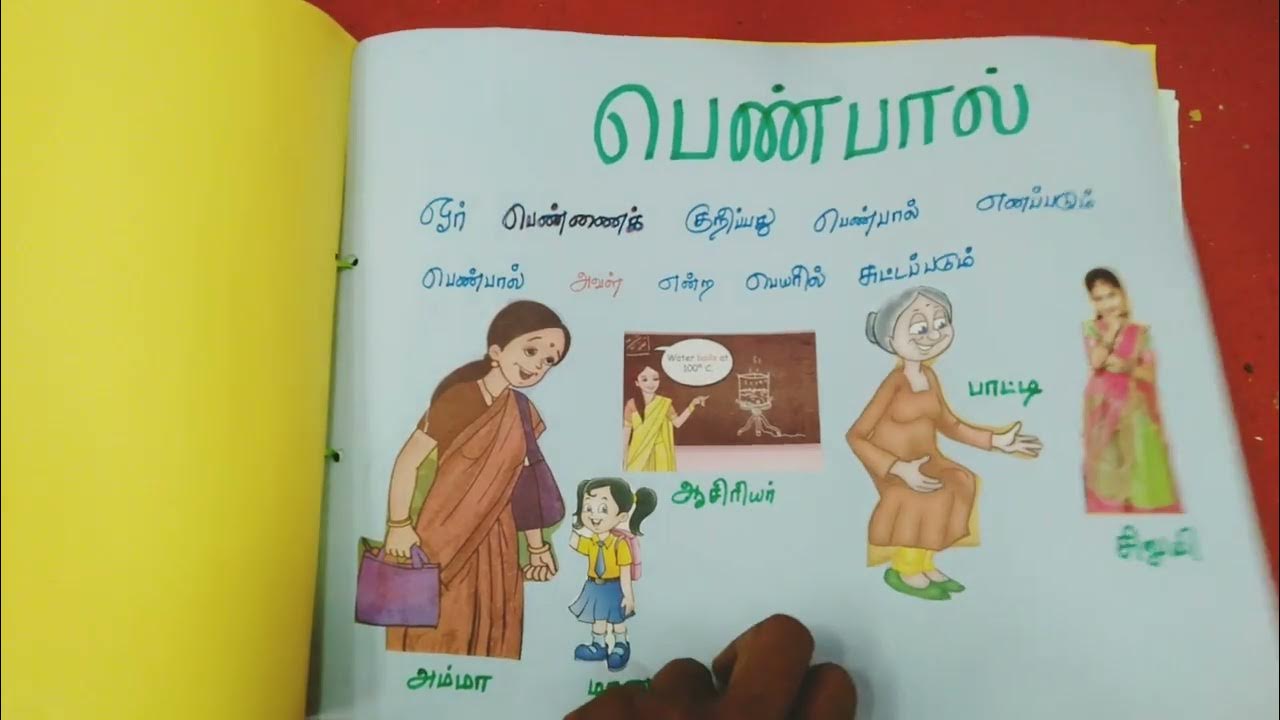 பெண்பால்
ஓர் பெண்ணைக் குறிப்பது பெண்பால் எனப்படும்
பெண்பால் அவள் என்ற பெயரில் சுட்டப்படும்
Water boils at
100° C.
ஆசிரியர்
பாட்டி
சிறுமி
அம்மா